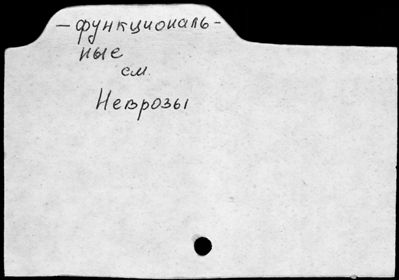 — функциональ-
ные
см.
Неврозы